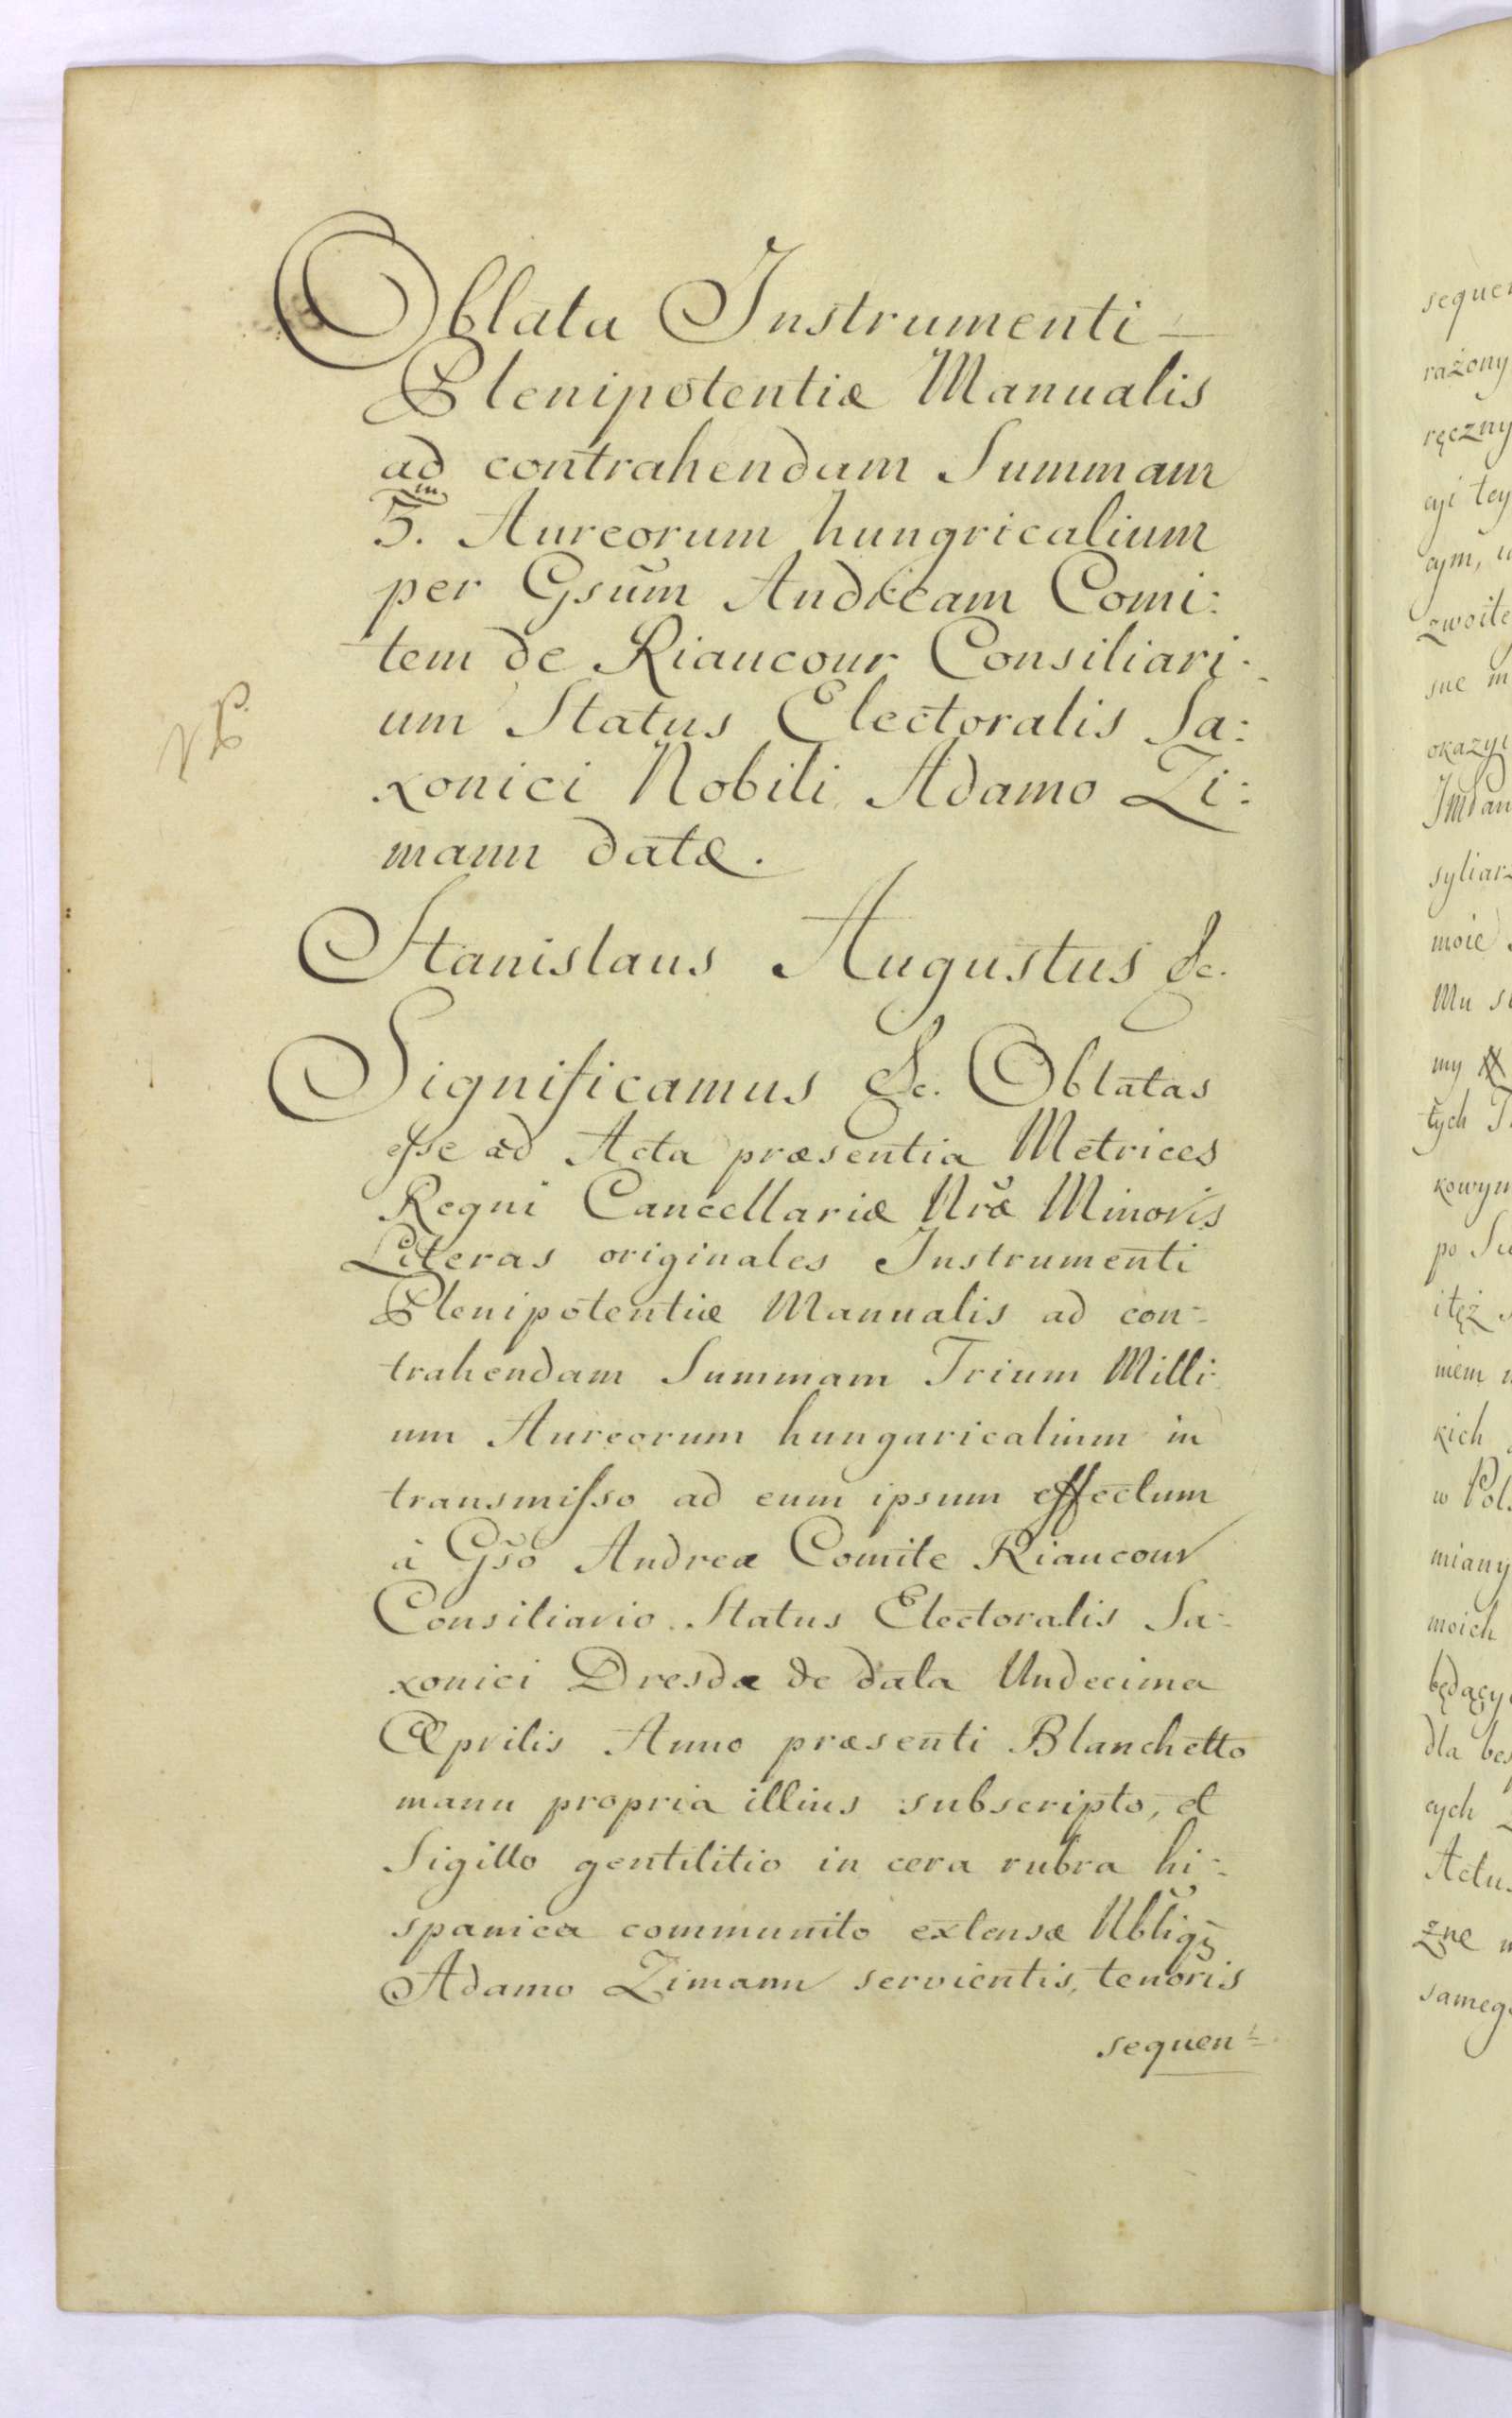 Oblata Instrumenti
Plenipotentiæ Manualis
ad contrahendam Summam
3.m Aureorum hungricalium
per Gsūm Andream Comi:
tem de Riaucour Consiliari:
um Status Electoralis Sa:
xonici Nobili Adamo Zi:
mann datæ.
Stanislaus Augustus &c.
Significamus &c. Oblatas
esse ad Acta præsentia Metrices
Regni Cancellariæ Nræ Minoris
Literas originales Instrumenti
Plenipotentiæ Manualis ad con-
trahendam Summam Trium Milli
um Aureorum hungaricalium in
transmisso ad eum ipsum effectum
à Gso Andrea Comite Riaucour
Consiliario Status Electoralis Sa-
xonici Dresdæ de data Undecima
Aprilis Anno præsenti Blanchetto
manu propria illius subscripto, et
Sigillo gentilitio in cera rubra hi-
spanica communito extensæ
Adamo Zimann servientis, tenoris
sequen-
rażony
ręczny
okazyi
moie
Mu
my
tych
po
itęż
niem
kich
w
miany
moich
dla
cych
samego